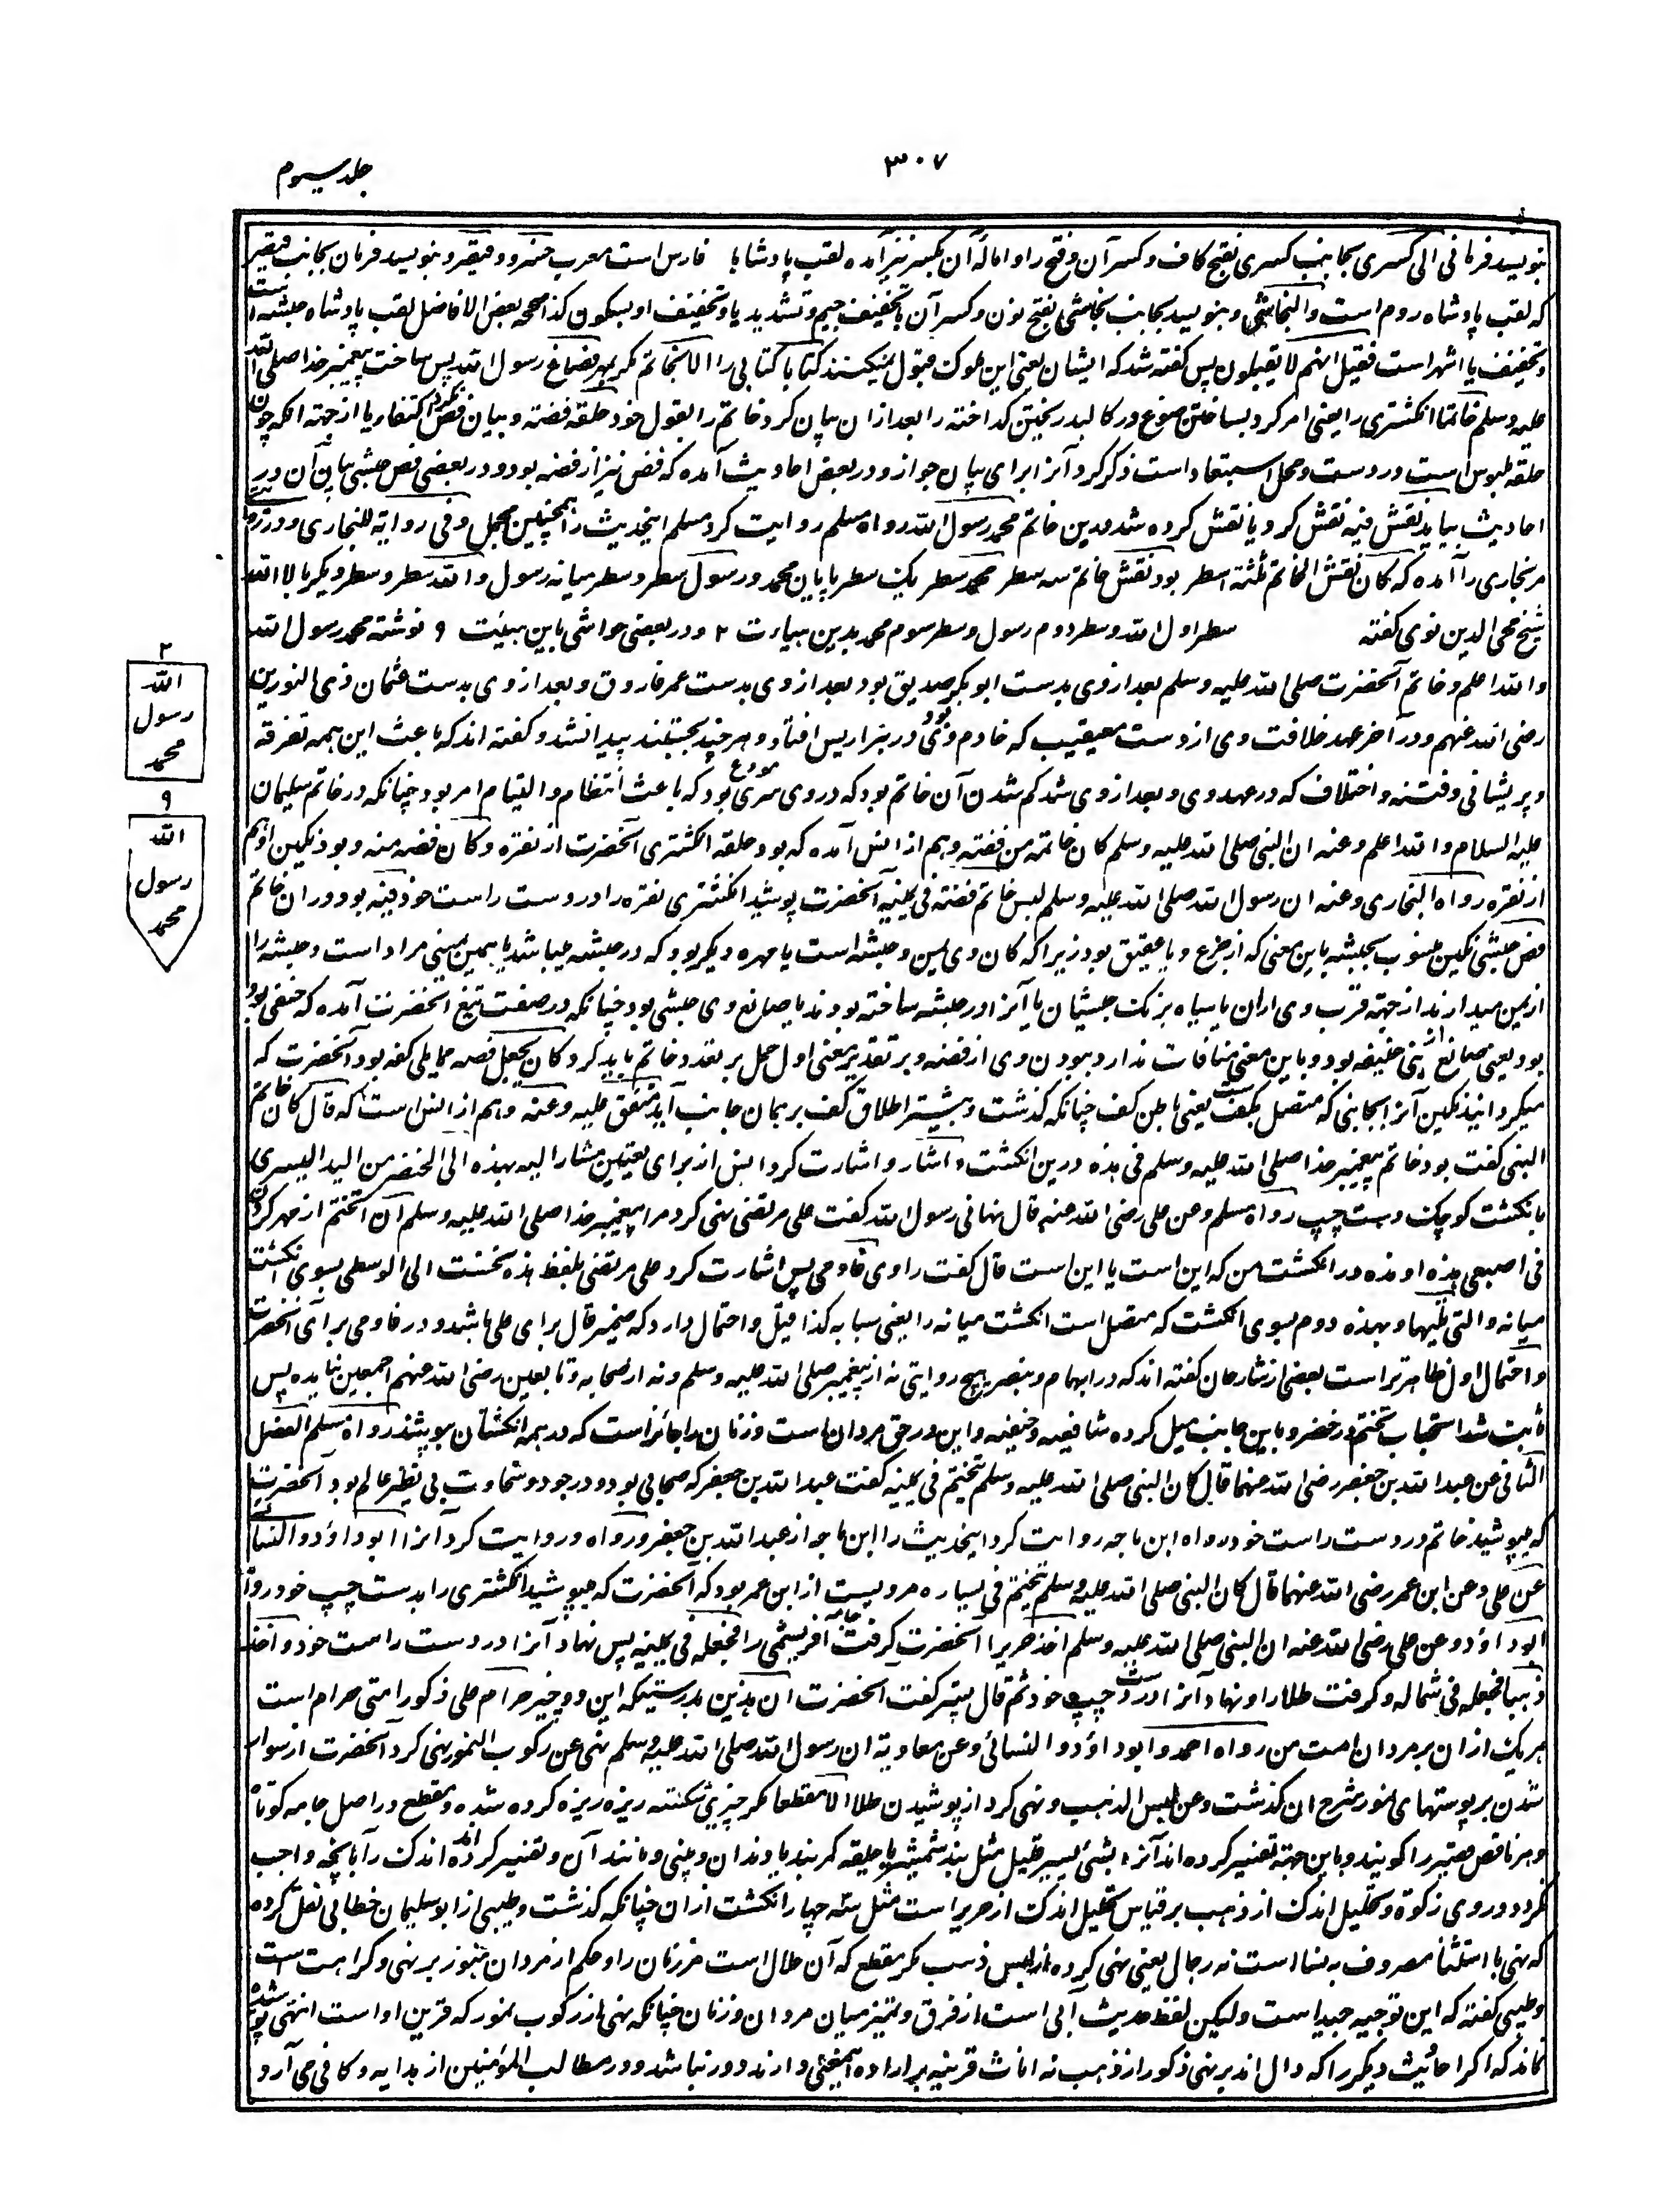 ۳۰۷
جلد سیوم
بنویسد فرمانی الی کسری بجانب کسری بفتح کاف و کسر آن و فتح را و امالهٔ آن بکسر نیز آمده لقب پادشاه فارس است معرب خسرو و قیصر و بنویسد فرمان بجانب قیصر
که لقب پادشاه روم است والنجاشی و بنویسد بجانب نجاشی بفتح نون و کسر آن بتخفیف جیم و تشدید یا و تخفیف او بسکون کذا صححه بعض الافاضل لقب پادشاه حبشه است
و تخفیف یا اشهر است فقیل انهم لا یقبلون پس گفته شد که ایشان یعنی این ملوک قبول نمیکنند کتابا کتابی را الا بخاتم مگر بمهر فصاغ رسول الله پس ساخت پیغمبر خدا صلی الله
علیه وسلم خاتما انگشتری را یعنی امر کرد بساختن صوغ در کالبد ریختن گداخته را بعد ازان بیان کرد خاتم را بقول خود حلقه فضة و بیان فص نکرد اکتفاء یا از جهته آنکه چون
حلقه ملبوس است در دست و محل استبعاد است ذکر کرد آنرا برای بیان جواز و در بعض احادیث آمده که فص نیز از فضه بود و در بعضی فص حبشی بیان آن در
احادیث بیاید نقش فیه نقش کرد یا نقش کرده شد درین خاتم محمد رسول الله رواه مسلم روایت کرد مسلم اینحدیث را همچنین مجمل و فی روایة للبخاری و در روایتی
مر بخاری را آمده که کان نقش الخاتم ثلثة اسطر بود نقش خاتم سه سطر محمد سطر یک سطر پایان محمد و رسول سطر و سطر میانه رسول و الله سطر و سطر دیگر بالا الله
شیخ محی الدین نووی گفته سطر اول الله و سطر دوم رسول و سطر سوم محمد بدین هیأت ۲ و در بعضی حواشی باین هیئت ۹ نوشته محمد رسول الله
والله اعلم و خاتم آنحضرت صلی الله علیه وسلم بعد از وی بدست ابوبکر صدیق بود بعد از وی بدست عمر فاروق و بعد از وی بدست عثمان ذی النورین
رضی الله عنهم و در آخر عهد خلافت وی از دست معیقیب که خادم وی بود در بئر اریس افتاد و هر چند بجستند پیدا نشد و گفته اند که باعث این همه تفرقه
و پریشانی و فتنه و اختلاف که در عهد وی و بعد از وی شد گم شدن آن خاتم بود که در وی سری مودع بود که باعث انتظام و التیام امر بود چنانکه در خاتم سلیمان
علیه السلام والله اعلم وعنه ان النبی صلی الله علیه وسلم کان خاتمه من فضة و هم از انس آمده که بود حلقه انگشتری آنحضرت از نقره وکان فصه منه و بود نگین او هم
از نقره رواه البخاری وعنه ان رسول الله صلی الله علیه وسلم لبس خاتم فضة فی یمینه آنحضرت پوشید انگشتری نقره را در دست راست خود فیه بود در ان خاتم
فص حبشی نگین منسوب بحبشه باین معنی که از جزع و یا عقیق بود زیرا که کان وی یمن و حبشه است یا مهره دیگر بود که در حبشه میباشد یا همین معنی مراد است و حبشه را
از یمن میدارند از جهته قرب وی ازان یا سیاه برنگ حبشیان یا آنرا در حبشه ساخته بودند یا صانع وی حبشی بود چنانکه در صفت تیغ آنحضرت آمده که حنفی بود
بود یعنی صانع از بنی حنیفه بود و باین معنی منافات ندارد ببودن وی از فضه و بر تقدیر معنی اول حمل بر تعدد خاتم باید کرد کان یجعل فصه مما یلی کفه بود آنحضرت که
میگردانید نگین آنرا بجانبی که متصل بکف ست یعنی باطن کف چنانکه گذشت و بیشتر اطلاق کف بر همان جانب آید متفق علیه وعنه و هم از انس است که قال کان خاتم
النبی گفت بود خاتم پیغمبر خدا صلی الله علیه وسلم فی هذه درین انگشت و اشار و اشارت کرد انس از برای تعیین مشار الیه بهذه الی الخنصر من الید الیسری
بانگشت کوچک دست چپ رواه مسلم وعن علی رضی الله عنه قال نهانی رسول الله گفت علی مرتضی نهی کرد مرا پیغمبر خدا صلی الله علیه وسلم ان اتختم از مهر کردن
فی اصبعی هذه او هذه در انگشت من که این است یا این است قال گفت راوی فاومی پس اشارت کرد علی مرتضی بلفظ هذه نخست الی الوسطی بسوی انگشت
میانه والتی تلیها و بهذه دوم بسوی انگشت که متصل است انگشت میانه را یعنی سبابه کذا قیل و احتمال دارد که ضمیر قال برای علی باشد و در فاومی برای آنحضرت
و احتمال اول ظاهرتر است بعضی از شارحان گفته اند که در ابهام و بنصر هیچ روایتی نه از پیغمبر صلی الله علیه وسلم و نه از صحابه و تابعین رضی الله عنهم اجمعین نیامده پس
ثابت شد استحباب تختم در خنصر و باین جانب میل کرده شافعیه و حنفیه و این در حق مردان است و زنان را جائز است که در همه انگشتان بپوشند رواه مسلم الفصل
الثانی عن عبد الله بن جعفر رضی الله عنهما قال کان النبی صلی الله علیه وسلم یتختم فی یمینه گفت عبد الله بن جعفر که صحابی بود و در جود و سخاوت بی نظیر عالم بود آنحضرت
که میپوشید خاتم در دست راست خود رواه ابن ماجه روایت کرد اینحدیث را ابن ماجه از عبد الله بن جعفر و رواه و روایت کرد آنرا ابو داؤد والنسائی
عن علی وعن ابن عمر رضی الله عنهما قال کان النبی صلی الله علیه وسلم یتختم فی یساره مرویست از ابن عمر بود که آنحضرت که میپوشید انگشتری را بدست چپ خود رواه
ابو داؤد وعن علی رضی الله عنه ان النبی صلی الله علیه وسلم اخذ حریرا آنحضرت گرفت جامه ابریشمی را فجعله فی یمینه پس نهاد آنرا در دست راست خود و اخذ
ذهبا فجعله فی شماله و گرفت طلا را و نهاد آنرا در دست چپ خود ثم قال پستر گفت آنحضرت ان هذین بدرستیکه این دو چیز حرام علی ذکور امتی حرام است
هر یک ازان بر مردان امت من رواه احمد وابو داؤد والنسائی وعن معاویة ان رسول الله صلی الله علیه وسلم نهی عن رکوب النمور نهی کرد آنحضرت از سوار
شدن بر پوستهای نمور شرح ان گذشت وعن لبس الذهب و نهی کرد از پوشیدن طلا الا مقطعا مگر چیزی شکسته ریزه ریزه کرده شده و مقطع در اصل جامه کوتاه
و هر ناقص معتبر را گویند و باین جهته تفسیر کرده اند آنرا بشئ یسیر قلیل مثل بند شمشیر یا حلقه کمربند یا دندان و بینی و مانند آن و تفسیر کرده اند اندک را بآنچه واجب
نگردد در وی زکوة و تحلیل اندک از ذهب بر قیاس تحلیل اندک از حریر است مثل سه چهار انگشت ازان چنانکه گذشت و طیبی از ابو سلیمان خطابی نقل کرده
که نهی با استثنا مصروف به نسا است نه رجال یعنی نهی کرده از لبس ذهب مگر مقطع که آن حلال است مر زنان را و حکم از مردان هنوز بر نهی و کراهت است
و طیبی گفته که این توجیه جید است ولیکن لفظ حدیث آبی است از فرق و تمیز میان مردان و زنان چنانکه نهی از رکوب نمور که قرین او است انتهی پوشیده
نماند که اگر احادیث دیگر را که دال اند بر نهی ذکور از ذهب نه اناث قرینه بر اراده همینمعنی دارند دور نباشد و در مطالب المؤمنین از هدایه و کافی می آرد
۲
الله
رسول
محمد
۹
الله
رسول
محمد